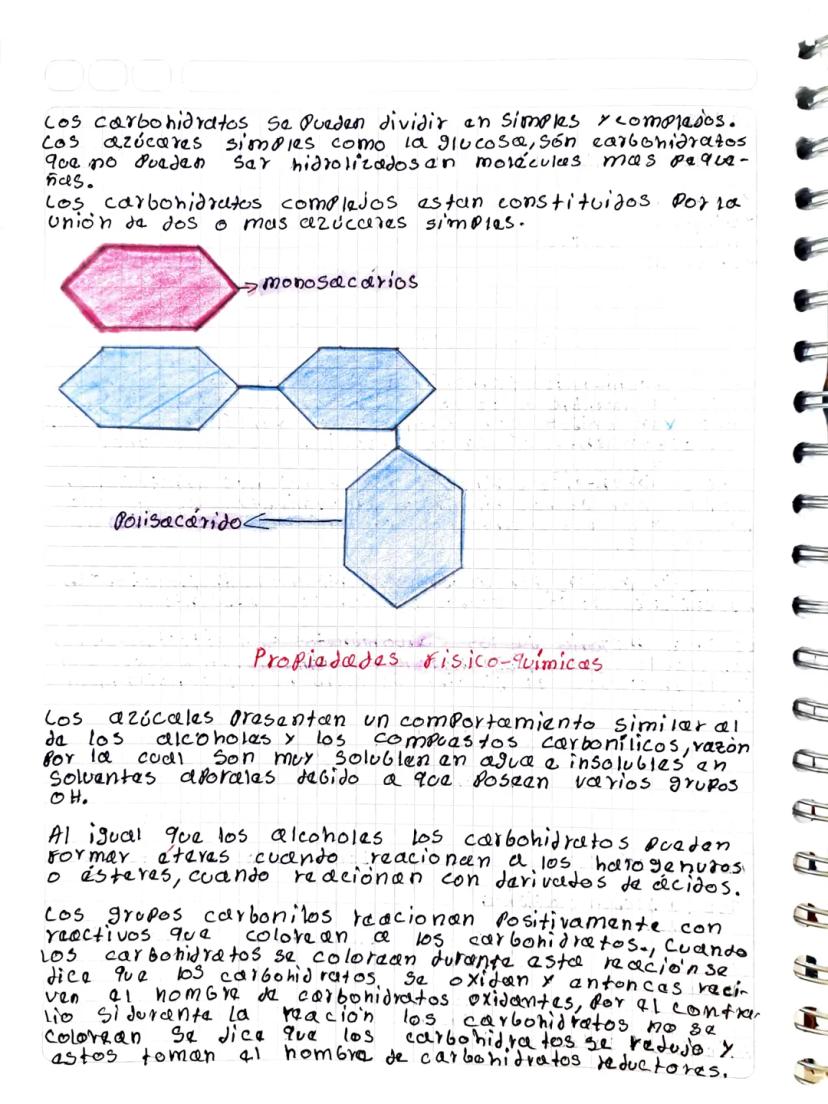 Los carbohidratos se pueden dividir en simples y complejos.
Los azúcares simples como la glucosa, són carbohidratos
que no pueden ser hidrolizados an moléculas mas peque-
ñas.
Los carbohidratos complejos estan constituidos por la
unión de dos o mas azúcares simples.
monosacários
Polisacárido
Propiedades fisico-químicas
Los azúcales presentan un comportamiento similar al
de los alcoholes y los compuestos carbonílicos, razón
por la cual son muy solublen en agua e insolubles en
solventes aporales debido a que poseen varios grupos
OH.
Al igual que los alcoholes los carbohidratos pueden
formar éteres cuando reacionen a los halogenuros
o ésteres, cuando reacionan con derivados de ácidos.
Los grupos carbonilos reacionan positivamente con
reactivos que colorean a los carbohidratos., Cuando
los carbohidratos se colorean durante esta reación se
dice que los carbohidratos se oxidan y antoncas reci-
ven el nombre de carbohidratos oxidantes, por el contra-
lio si durante la reación los carbohidratos no se
colorean se dice que los carbohidratos se redujo y
estos toman el nombre de carbohidratos reductores.